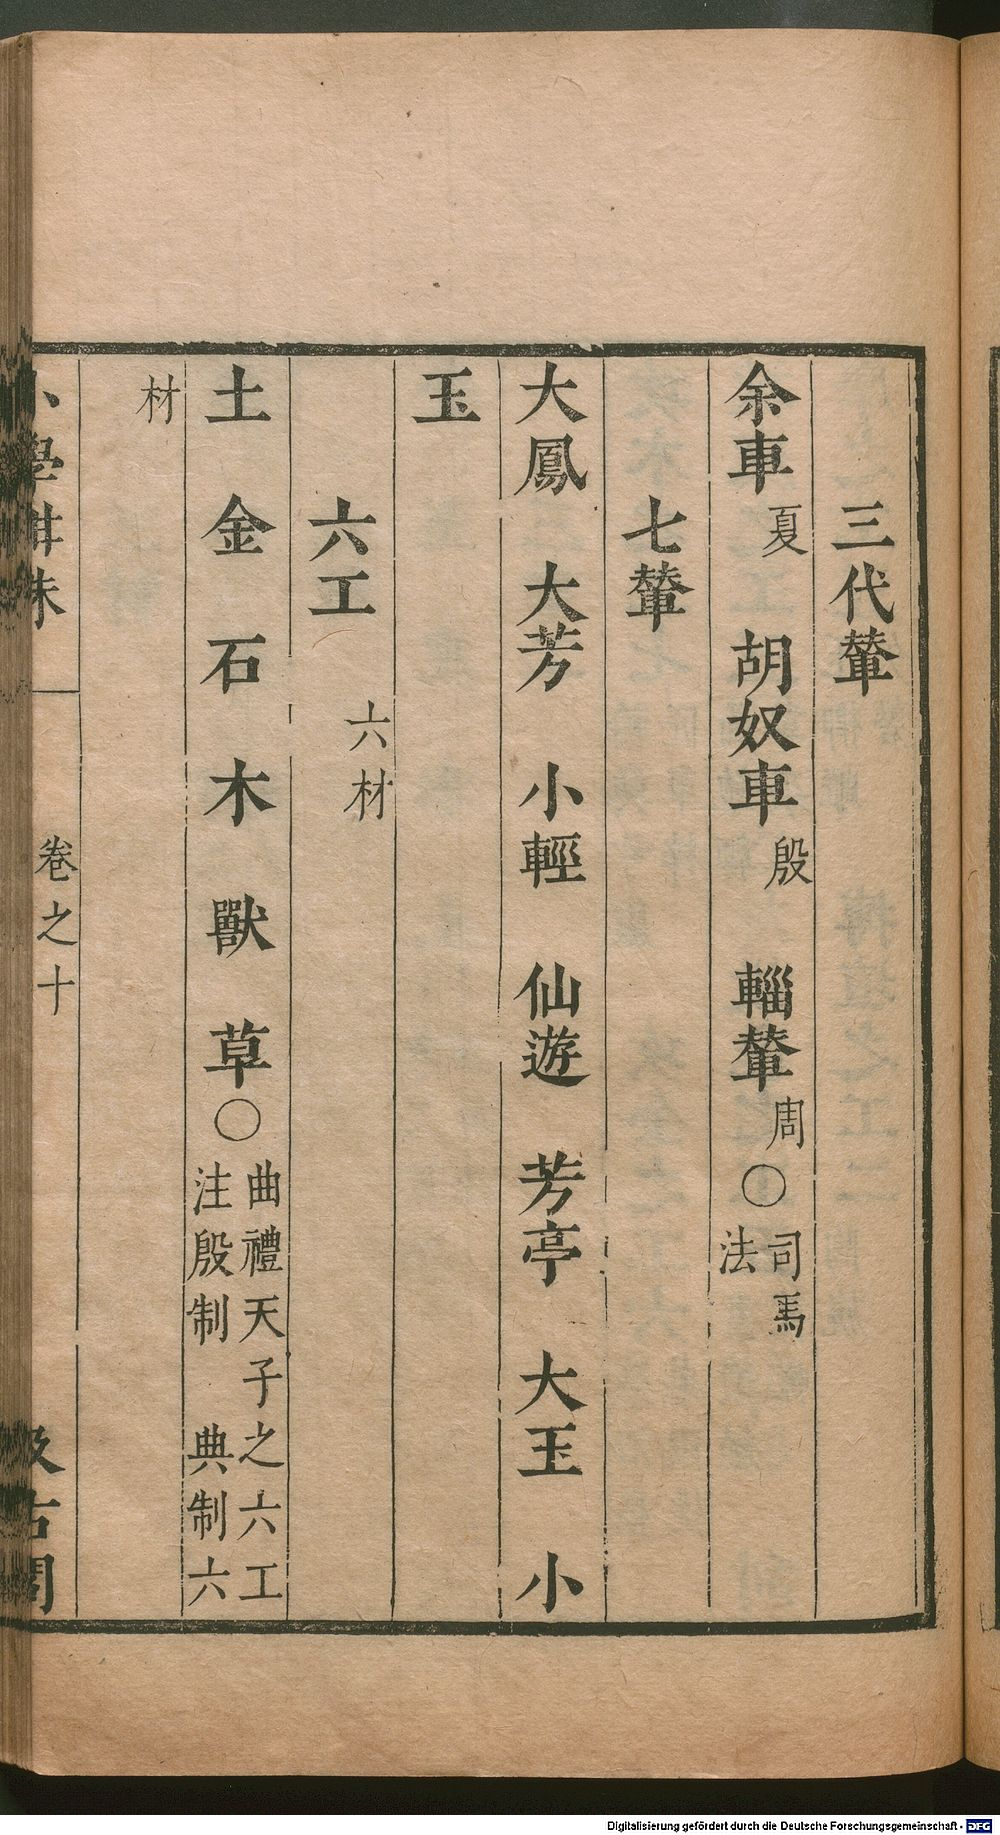 三代輦
余車夏 胡奴車殷 輜輦周○司馬法
七輦
大鳳 大芳 小輕 仙遊 芳亭 大玉 小
玉
六工 六材
土 金 石 木 獸 草○曲禮天子之六工注殷制 典制六
材
小學紺珠 卷之十 汲古閣
Digitalisierung gefördert durch die Deutsche Forschungsgemeinschaft - DFG